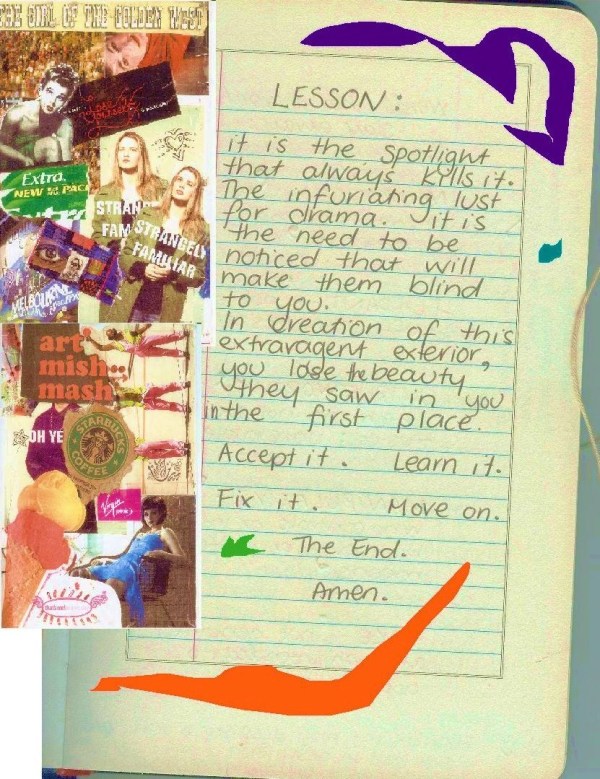 THE GIRL OF THE GOLDEN WEST
Extra.
NEW PAC
STRAN
FAM
STRANGELY
FAMILIAR
MELBOURNE
art
mish..
mash
OH YE
STARBUCKS
COFFEE
Virgin
LESSON :
it is the spotlight
that always kills it.
The infuriating lust
for drama. it is
the need to be
noticed that will
make them blind
to you.
In creation of this
extravagent exterior,
you lose the beauty
they saw in you
in the first place.
Accept it. Learn it.
Fix it. Move on.
The End.
Amen.